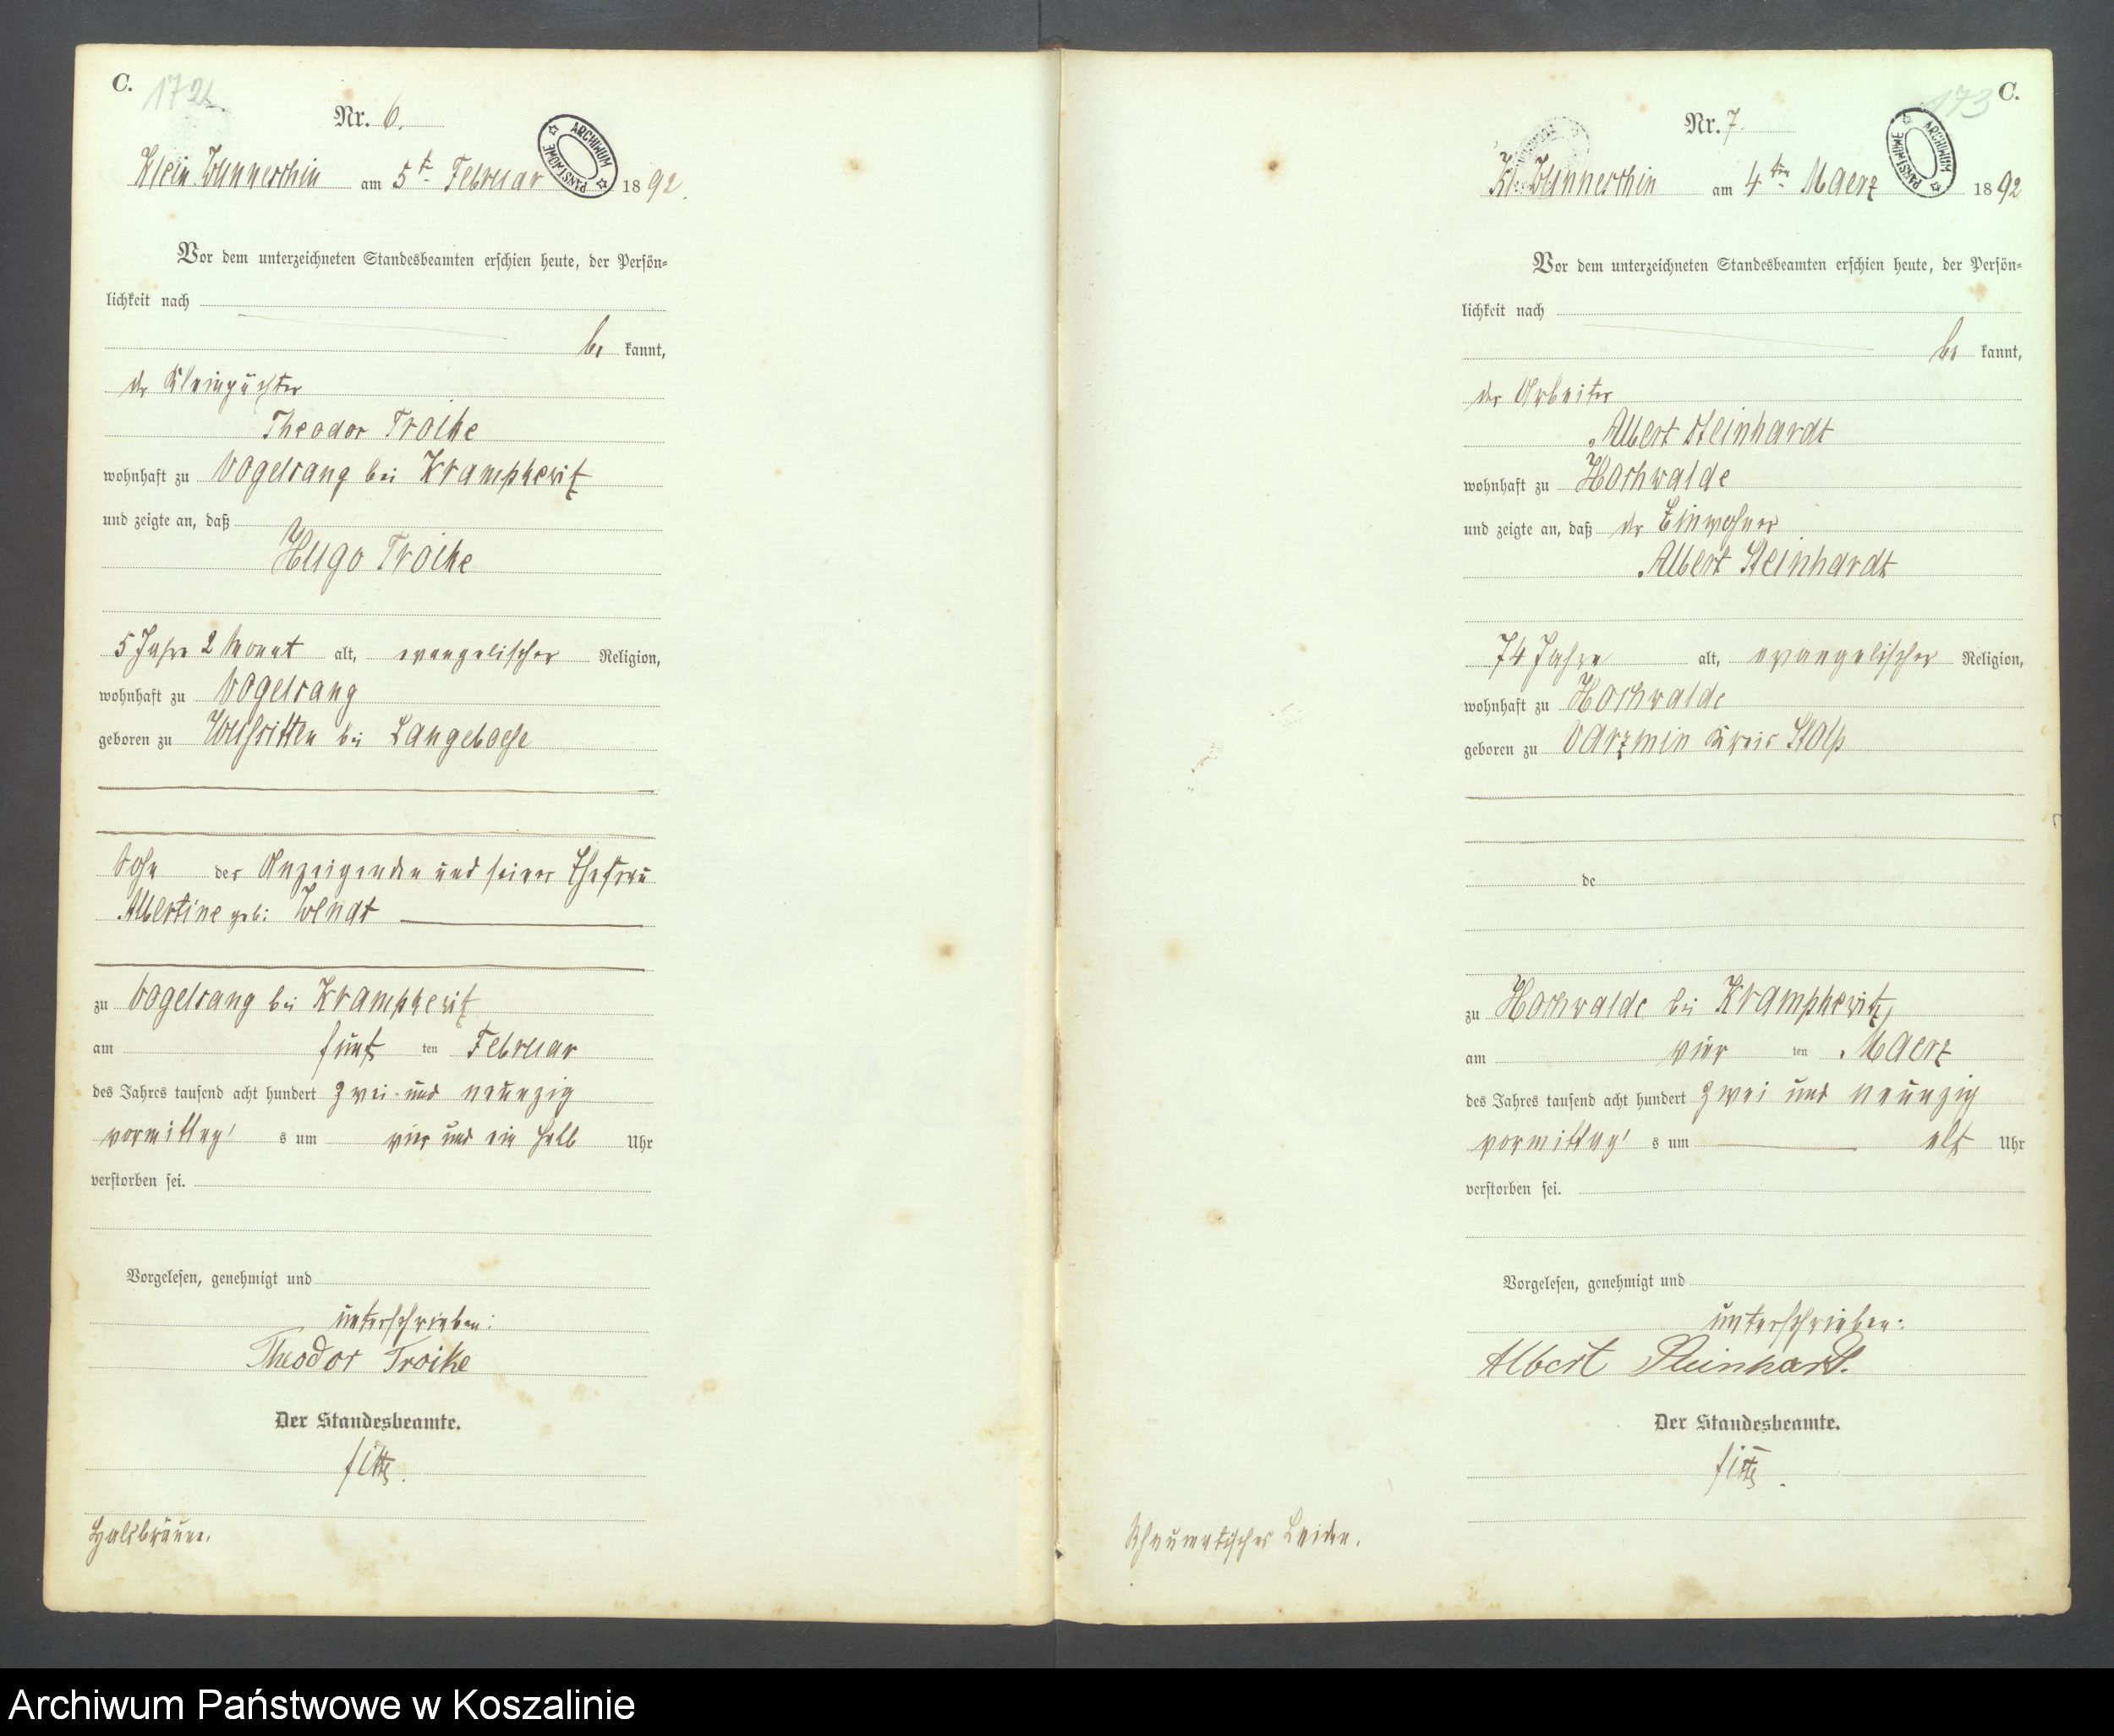 C. 172
Nr. 6.
ARCHIWUM PAŃSTWOWE
Klein Wunneschin am 5t Februar 1892.
Vor dem unterzeichneten Standesbeamten erschien heute, der Persön-
lichkeit nach
be kannt,
der Kleinpächter
Theodor Troike
wohnhaft zu Vogelsang bei Krampkewitz
und zeigte an, daß
Hugo Troike
5 Jahre 2 Monat alt, evangelischer Religion,
wohnhaft zu Vogelsang
geboren zu bei Langeboese
Sohn des Anzeigenden und seiner Ehefrau
Albertine geb: Wendt
zu Vogelsang bei Krampkewitz
am fünf ten Februar
des Jahres tausend acht hundert zwei und neunzig
vormittag's um vier und ein halb Uhr
verstorben sei.
Vorgelesen, genehmigt und
unterschrieben:
Theodor Troike
Der Standesbeamte.
Halsbräune.
173 C.
Nr. 7.
ARCHIWUM PAŃSTWOWE
Kl. Wunneschin am 4ten Maerz 1892
Vor dem unterzeichneten Standesbeamten erschien heute, der Persön-
lichkeit nach
be kannt,
der Arbeiter
Albert Steinhardt
wohnhaft zu Hochwalde
und zeigte an, daß der Einwohner
Albert Steinhardt
74 Jahre alt, evangelischer Religion,
wohnhaft zu Hochwalde
geboren zu Varzmin Kreis Stolp
de
zu Hochwalde bei Krampkewitz,
am vier ten Maerz
des Jahres tausend acht hundert zwei und neunzig
vormittag's um elf Uhr
verstorben sei.
Vorgelesen, genehmigt und
unterschrieben:
Albert Steinhardt.
Der Standesbeamte.
Rheumatisches Leiden.
Archiwum Państwowe w Koszalinie